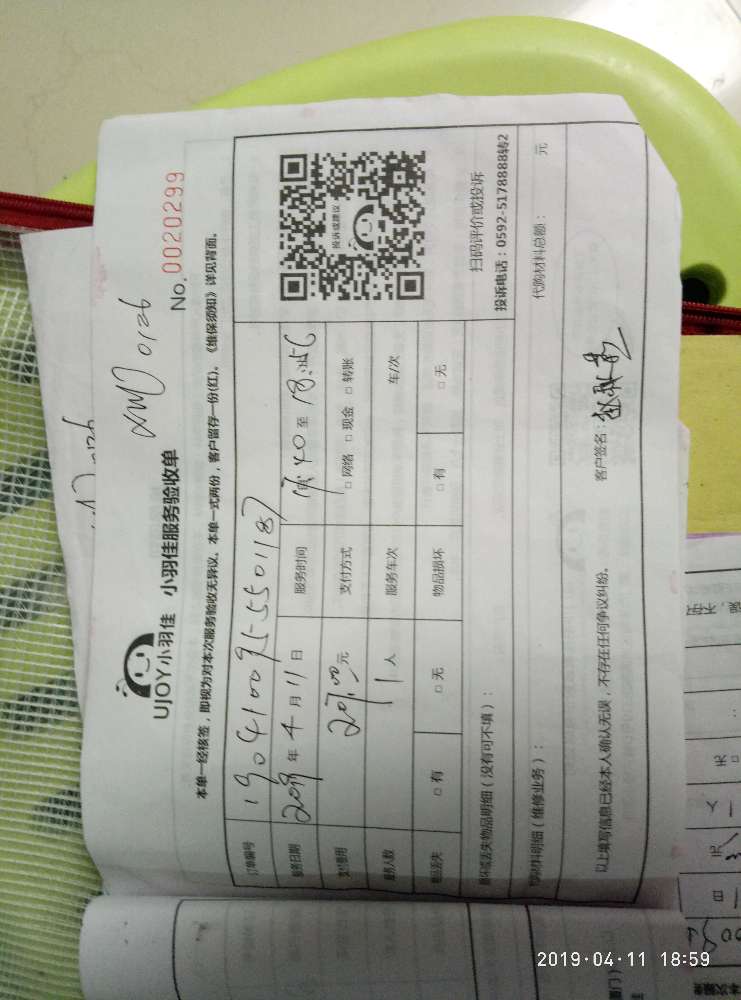 XMJ0126
UJOY小羽佳 小羽佳服务验收单
No.0020299
本单一经核签，即视为对本次服务验收无异议。本单一式两份，客户留存一份(红)。《维保须知》详见背面。
订单编号
服务日期 2019 年 4 月 11 日 服务时间 至 18:56
支付费用 元 支付方式 □ 网络 □ 现金 □ 转账
服务人数 1 人 服务车次 车/次
物品丢失 □ 有 □ 无 物品损坏 □ 有 □ 无
投诉或建议
扫码评价或投诉
投诉电话：0592-5178888转2
损坏或丢失物品明细（没有可不填）：
代购材料明细（维修业务）： 代购材料总额： 元
以上填写信息已经本人确认无误，不存在任何争议纠纷。 客户签名：
2019·04·11 18:59